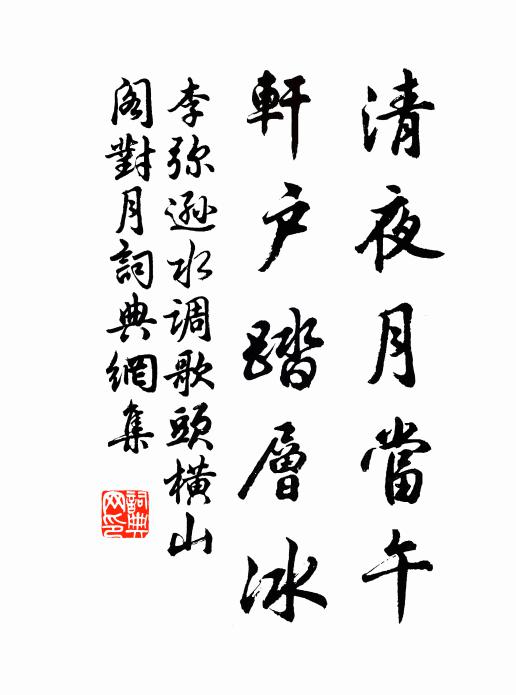 清夜月當午
軒户踏層冰
李弥遜水调歌頭横山
阁對月詞典網集
詞典网印